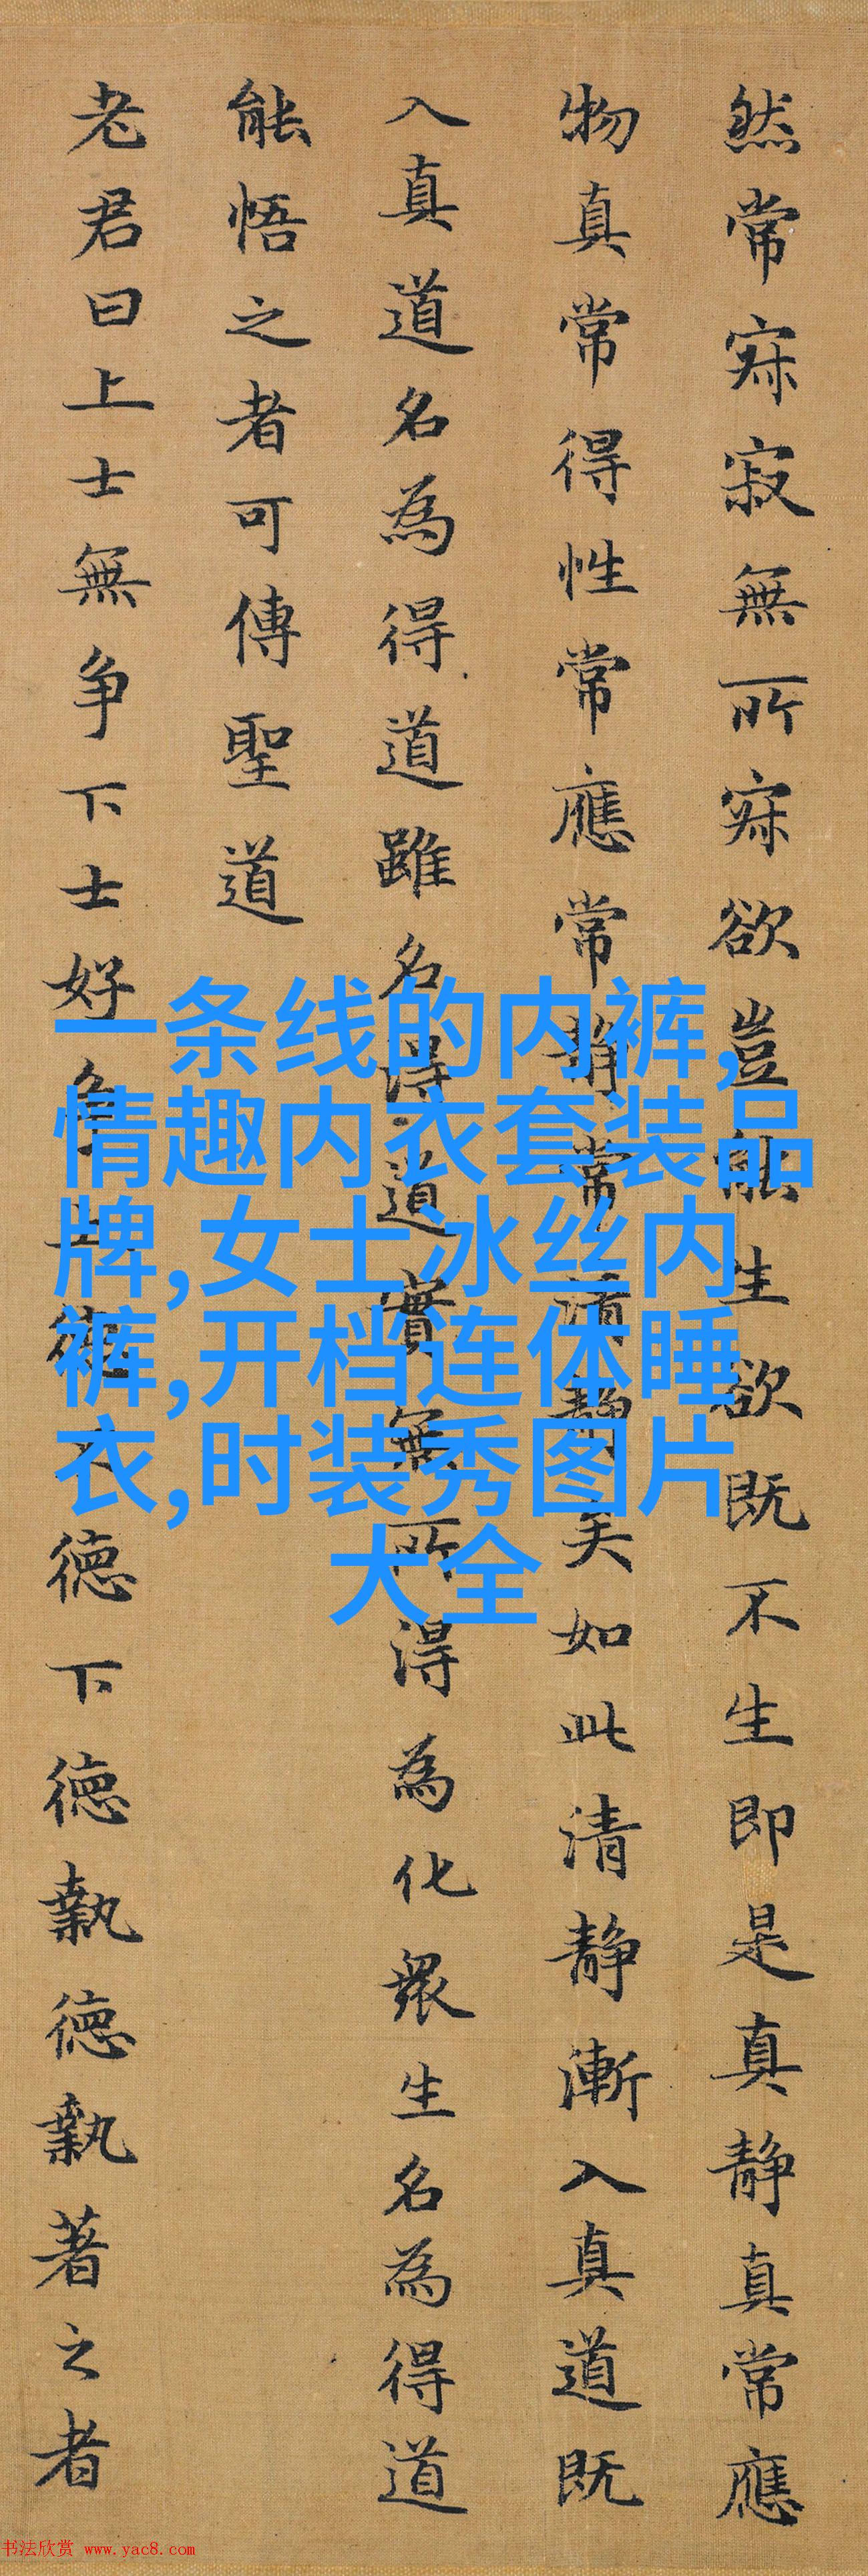 然常寂寂無所寂欲豈能生欲既不生即是真静真常應
物真常得性常應常静常清静矣如此清静漸入真道既
入真道名為得道雖名得道實無所得為化衆生名為得道
能悟之者可傳聖道
老君曰上士無争下士好争上德不德下德執德執著之者
一条线的内裤,
情趣内衣套装品
牌,女士冰丝内
裤,开档连体睡
衣,时装秀图片
大全
书法欣赏 www.yac8.com